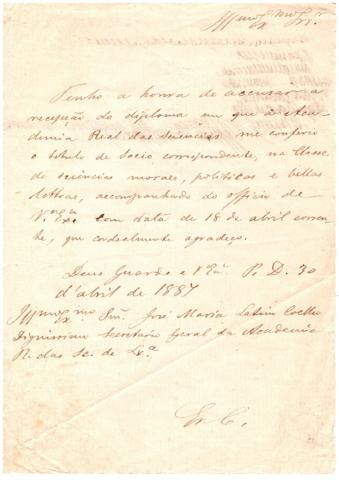 Illmo. Exmo. Snr.
Tenho a honra de accusar a
recepção do diploma em que a Aca-
demia Real das Sciencias me conferio
o titulo de Socio correspondente, na Classe
de sciencias moraes, politicas e bellas
lettras, acompanhado do officio de
V.ª Ex.ª com data de 18 de abril corren-
te, que cordealmente agradeço.
Deus Guarde a V. Ex.ª P. D. 30
d'abril de 1887
Illmo. Exmo. Snr. José Maria Latino Coelho
Dignissimo Secretario Geral da Academia
R. das Sc. de Lx.ª